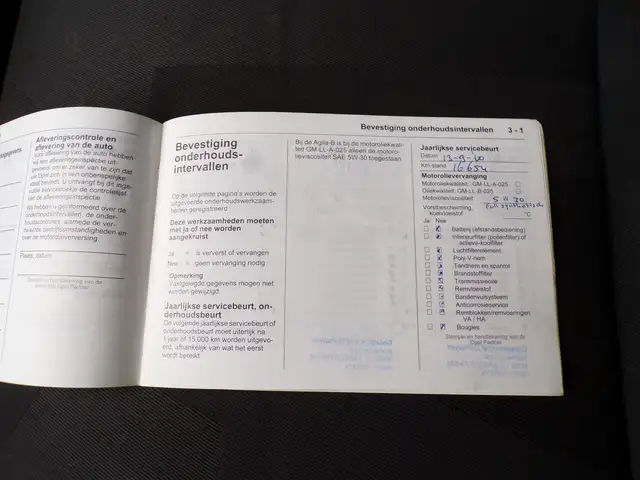 Afleveringscontrole en
aflevering van de auto
Voor aflevering van de auto hebben
wij een afleveringsinspectie uit-
gevoerd, om er zeker van te zijn dat
uw Opel zich in een onberispelijke
staat bevindt. U ontvangt bij de inge-
bruikneming de controlelijst
van de afleveringsinspectie.
Wij hebben u geïnformeerd over de
onderhoudsintervallen, de onder-
houdscontroles, alsmede de ver-
en over de motorolieverversing.
Plaats, datum
Opel Partner
Bevestiging onderhoudsintervallen 3 - 1
Bevestiging
onderhouds-
intervallen
Op de volgende pagina's worden de
uitgevoerde onderhoudswerkzaam-
heden geregistreerd.
Deze werkzaamheden moeten
met ja of nee worden
aangekruist
Ja = is ververst of vervangen
Nee = geen vervanging nodig
Opmerking
Vastgelegde gegevens mogen niet
worden gewijzigd.
Jaarlijkse servicebeurt, on-
derhoudsbeurt
De volgende jaarlijkse servicebeurt of
onderhoudsbeurt moet uiterlijk na
1 jaar of 15.000 km worden uitgevo-
erd, afhankelijk van wat het eerst
wordt bereikt
Bij de Agila-B is bij de motoroliekwali-
teit GM-LL-A-025 alleen de motoro-
lieviscositeit SAE 5W-30 toegestaan.
Jaarlijkse servicebeurt
Datum
Km-stand 16654
Motorolievervanging
Motoroliekwaliteit: GM-LL-A-025
Oliekwaliteit: GM-LL-B-025
Motorolieviscositeit: 5 W 30
Vorstbescherming,
koelvloeistof °C
Ja Nee
Batterij (afstandsbediening)
Interieurfilter (pollenfilter) of
actieve-koolfilter
Luchtfilterelement
Poly-V-riem
Tandriem en spanrol
Brandstoffilter
Transmissieolie
Remvloeistof
Bandensulsysteem
Anticorrosieservice
Remblokken/remvoeringen
VA / HA
Bougies
Stempel en handtekening van de
Opel Partner